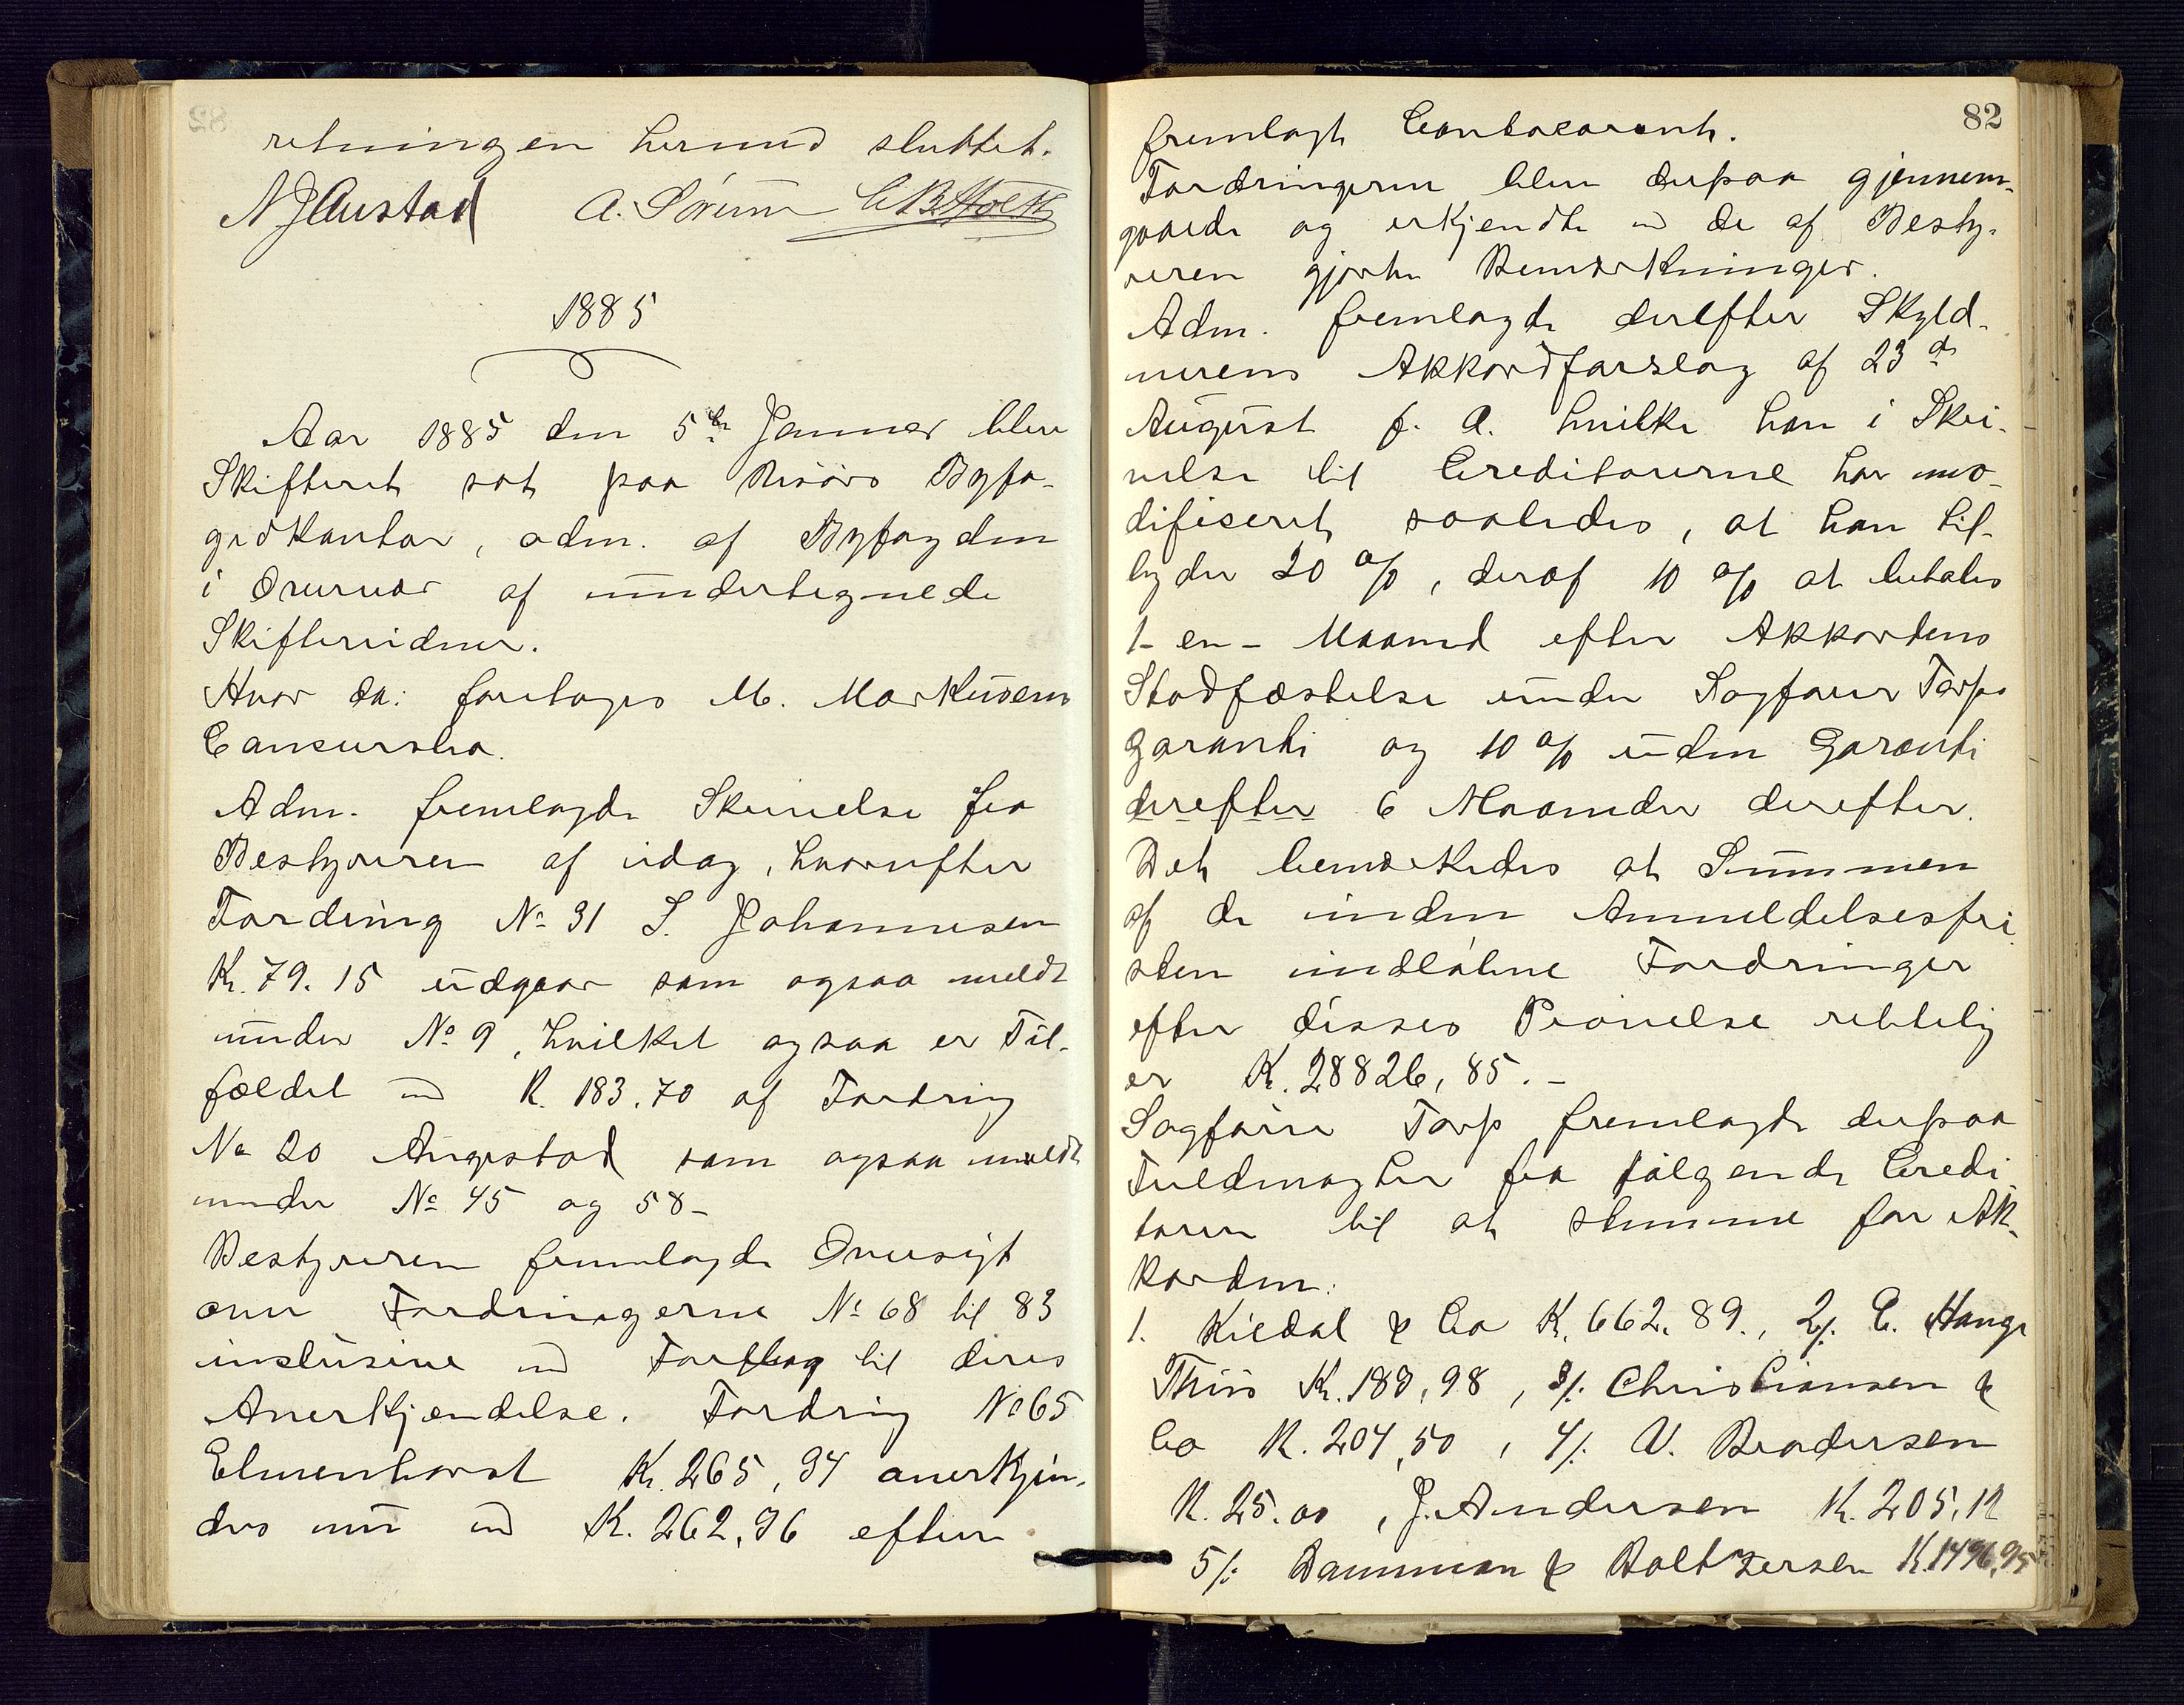 retningen hermed sluttet.
NJAustad A. Sørum C.B. Holth
1885
Aar 1885 den 5te Januar blev
Skifteret sat paa Risørs Byfo-
gedkontor, adm. af Byfogden
i Overvær af undertegnede
Skiftevidner.
Hvor da: foretoges M. Markusens
Concursbo.
Adm. fremlagde Skrivelse fra
Bestyreren af idag, hvorefter
Fordring No 31 S. Johannesen
K. 79.15 udgaar som ogsaa meldt
under No 9, hvilket ogsaa er Til-
fældet m K. 183.70 af Fordring
No 20 Angestad som ogsaa meldt
under No 45 og 58 -
Bestyreren fremlagde Oversigt
over Fordringerne No 68 til 83
inclusive m Forslag til deres
Anerkjendelse. Fordring No 65
Elmenhorst K. 265,94 anerkjen-
des nu m K. 262,96 efter
82
fremlagt Contocorant.
Fordringerne blev derpaa gjennem-
gaaede og erkjendte m de af Besty-
reren gjorte Bemærkninger.
Adm. fremlagde derefter Skyld-
nerens Akkordforslag af 23de
August f. A. hvilke han i Skri-
velse til Creditorerne har mo-
dificeret saaledes, at han til-
byder 20 %, deraf 10 % at betales
1 - en - Maaned efter Akkordens
Stadfæstelse under Sagfører Torps
garanti og 10 % uden Garanti
derefter 6 Maaneder derefter.
Det bemærkedes at Summen
af de inden Anmeldelsesfri
sten indløbne Fordringer
efter disses Prøvelse rettelig
er K. 28826,85. -
Sagfører Torp fremlagde derpaa
Fuldmagter fra følgende Credi
torer til at stemme for Ak-
korden:
1. Kiedal & Co K. 662.89., 2/. C. Hauge
Thiis K. 189,98, 3/. Christiansen &
Co K. 204,50, 4/. V. Brodersen
K. 25.00, J. Andersen K. 205,12
5/: Dammman & Baltzersen K. 1496,95